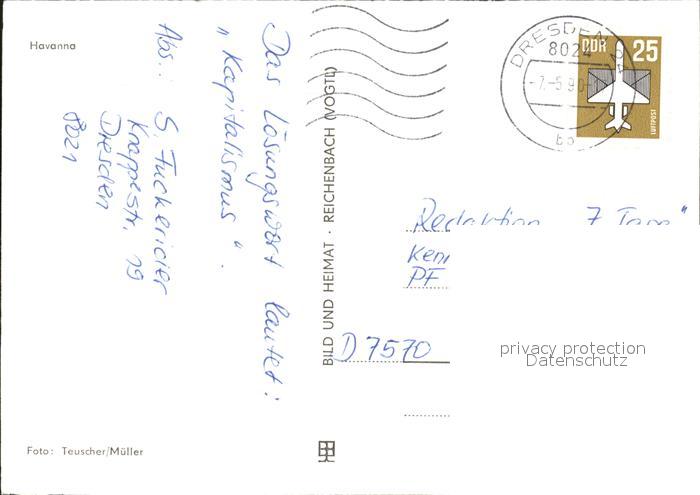 Havanna
Das Lösungswort lautet:
„Kapitalismus“.
Abs.: S. Fuckerider
Knappestr. 19
Dresden
8021
Foto: Teuscher/Müller
BILD UND HEIMAT · REICHENBACH (VOGTL)
DRESDEN 24
8024
-7.-5.90-
bb
DDR 25
LUFTPOST
Redaktion 7 Tage“
PF
D 7570
privacy protection
Datenschutz